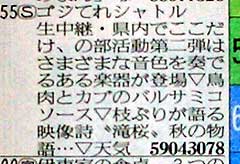 55Ⓢゴジてれシャトル
生中継・県内でここだ
け、の部活動第二弾は
さまざまな音色を奏で
るある楽器が登場▽鳥
肉とカブのバルサミコ
ソース▽枝ぶりが語る
映像詩「滝桜」秋の物
語…▽天気 59043078